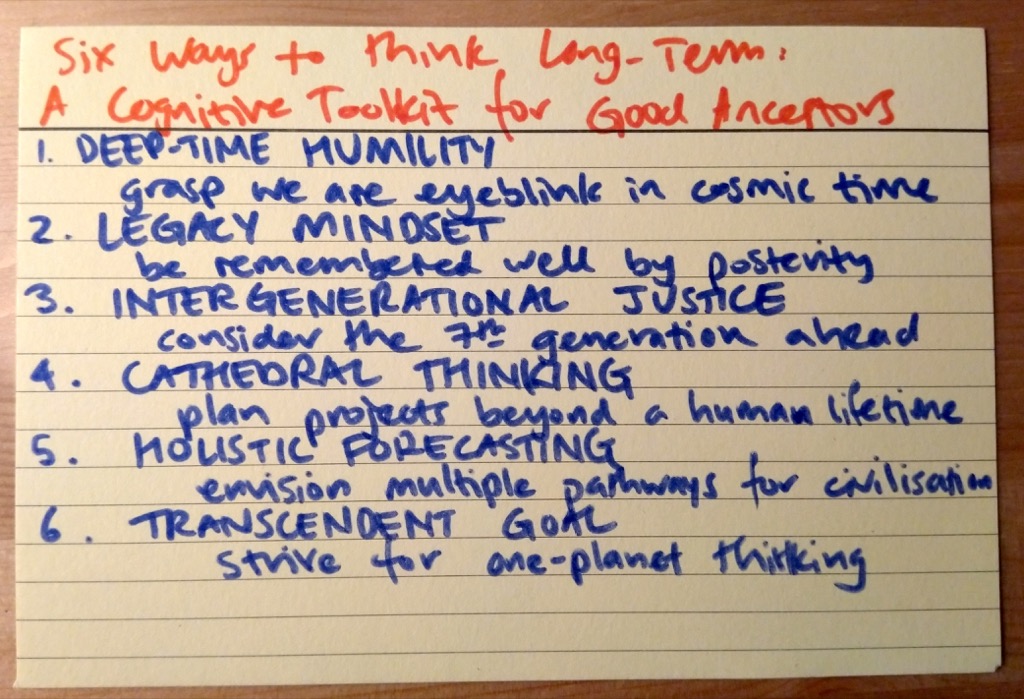 Six Ways to Think Long-Term:
A Cognitive Toolkit for Good Ancestors
1. DEEP-TIME HUMILITY
grasp we are eyeblink in cosmic time
2. LEGACY MINDSET
be remembered well by posterity
3. INTERGENERATIONAL JUSTICE
consider the 7th generation ahead
4. CATHEDRAL THINKING
plan projects beyond a human lifetime
5. HOLISTIC FORECASTING
envision multiple pathways for civilisation
6. TRANSCENDENT GOAL
strive for one-planet thinking